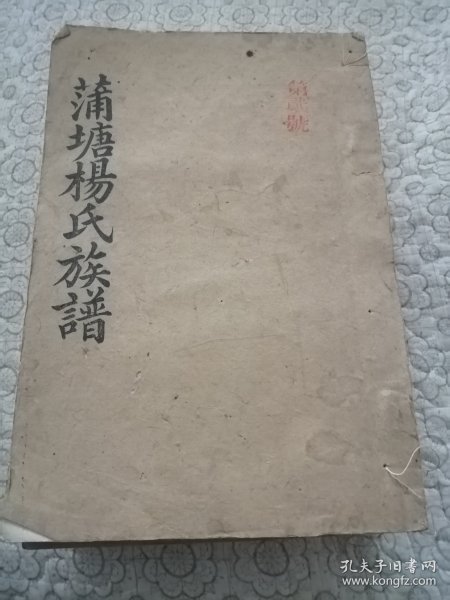 蒲塘楊氏族譜
第貳號
孔夫子旧书网
www.kongfz.com